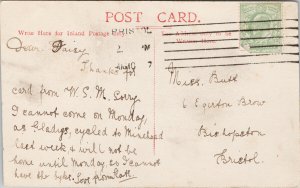 POST CARD.
BRISTOL
Dear Daisy
Thanks for
card from W. S. M. Sorry
I cannot come on Monday,
as Gladys, cycled to Minehead
last week & will not be
home until Monday so I cannot
have the bike. Love from
Miss Butt
6 Egerton Brow
Bishopston
Bristol.